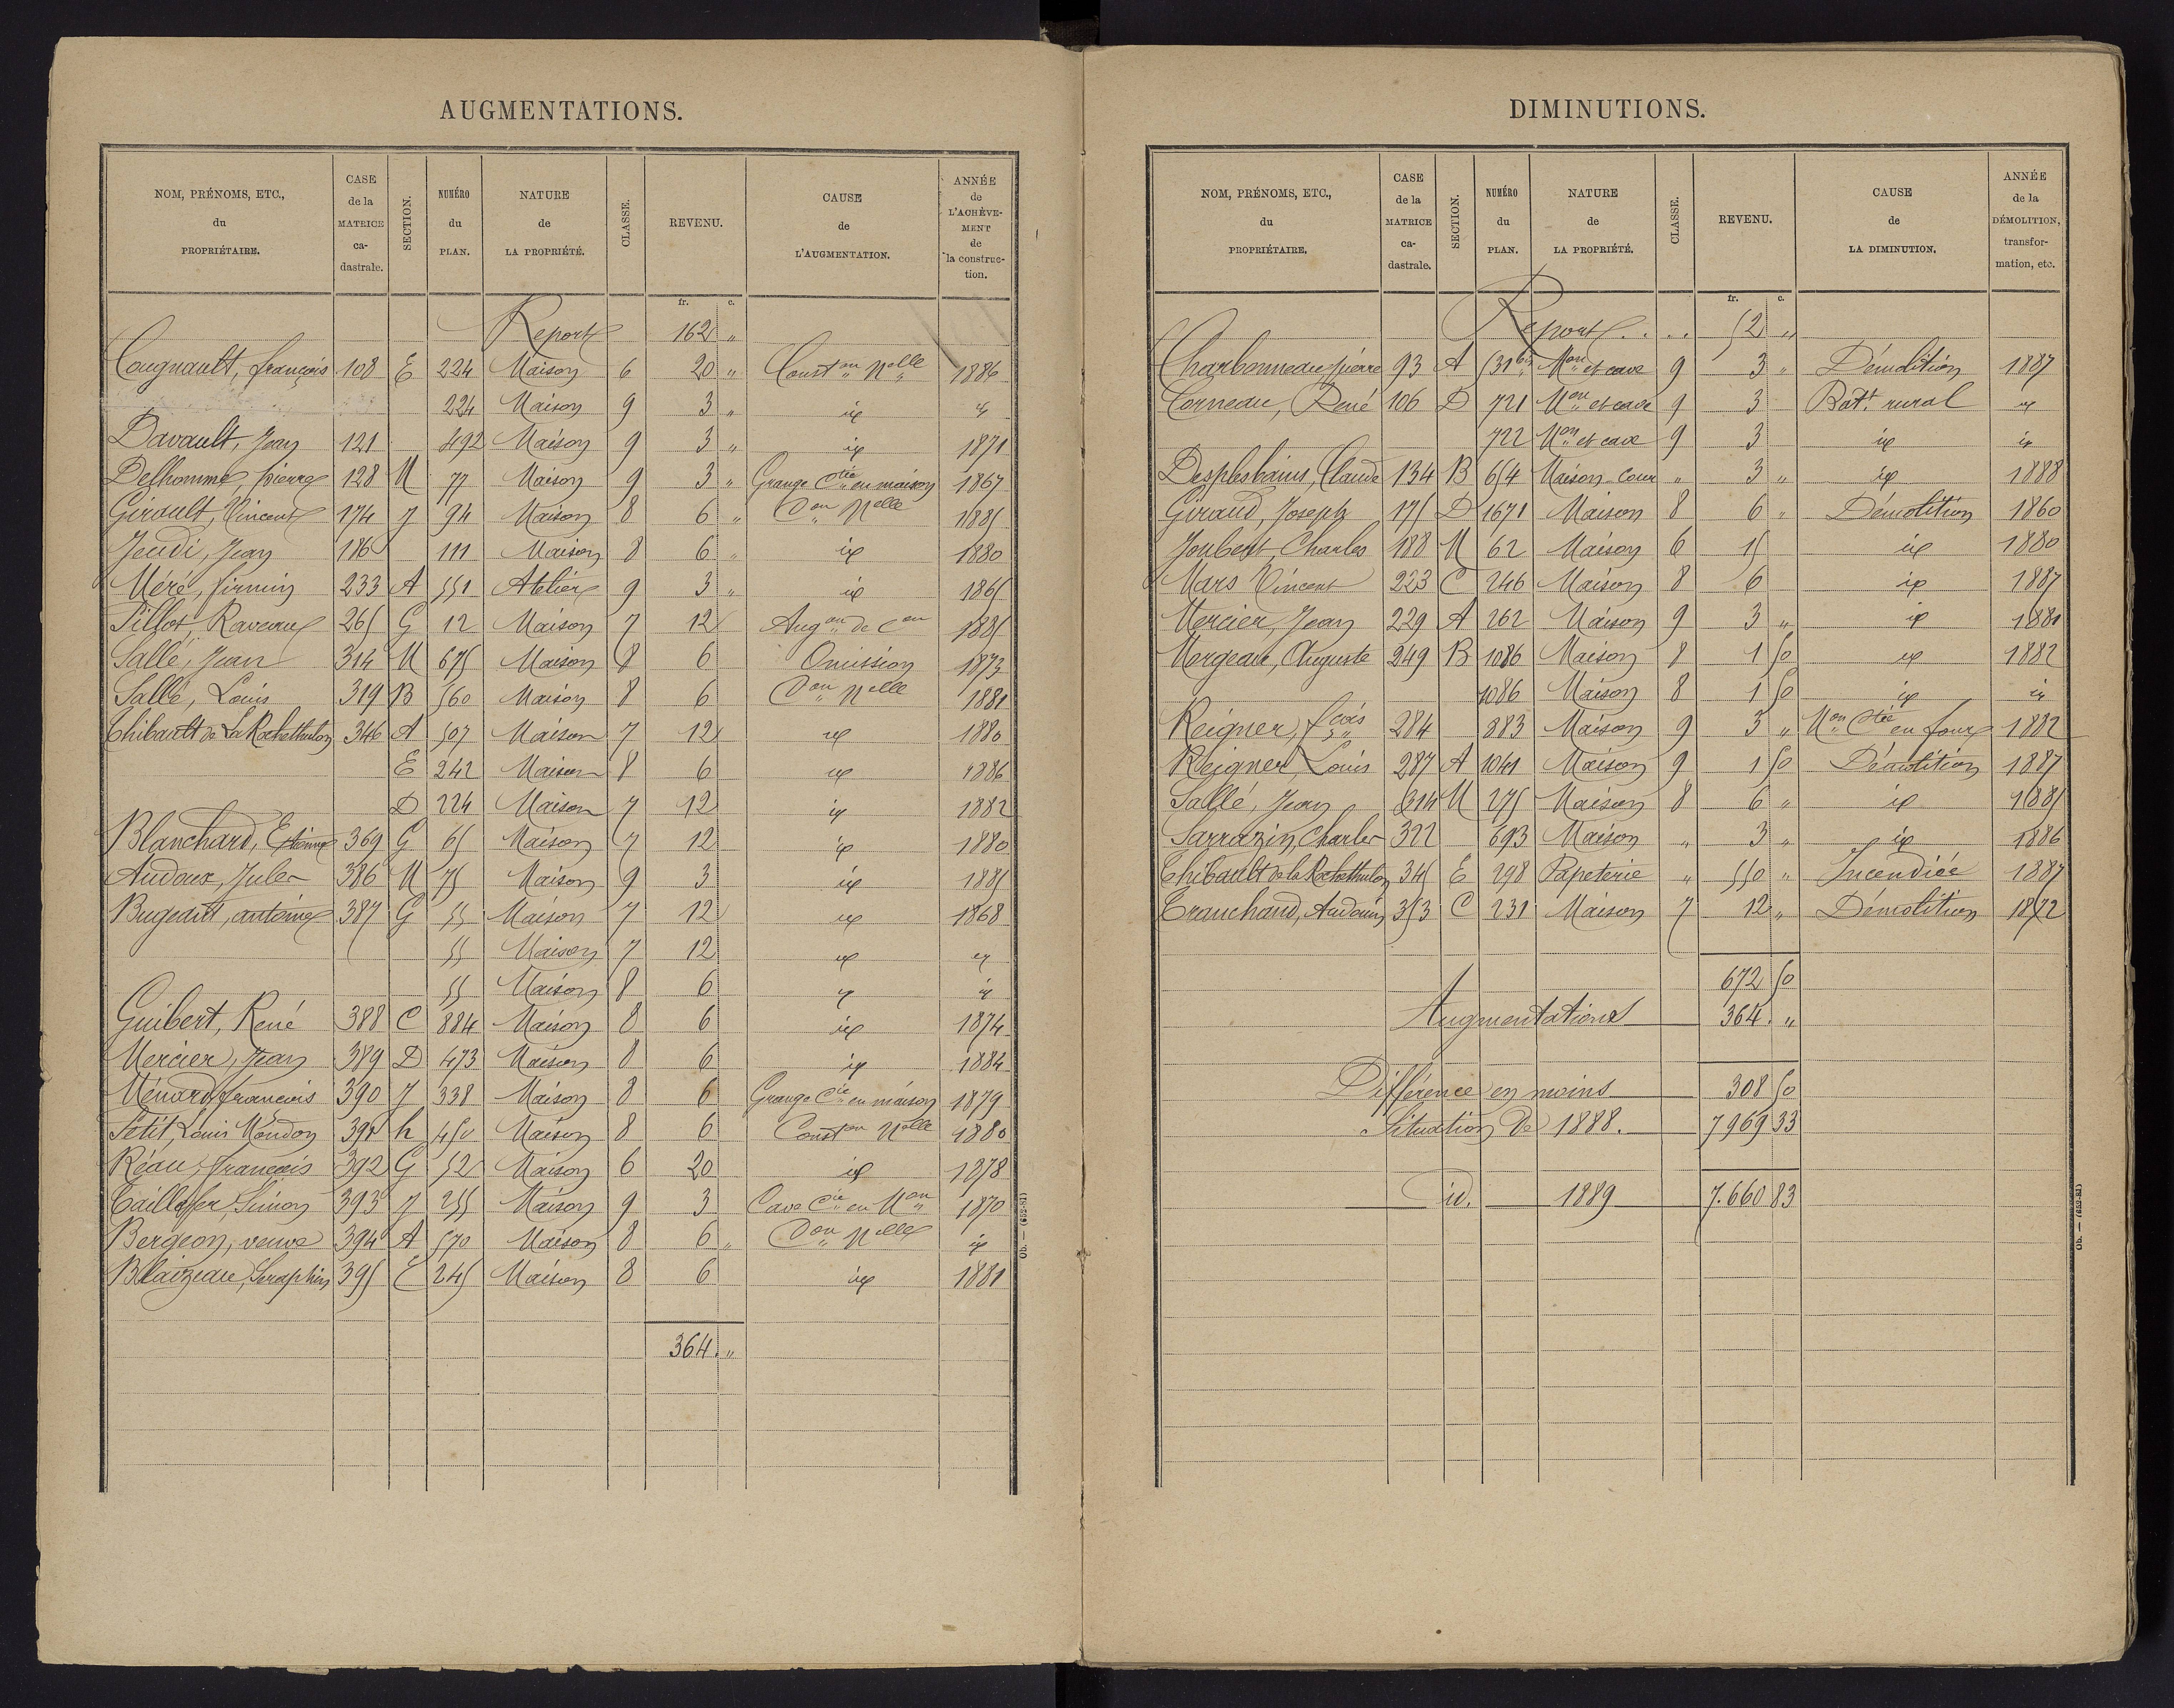 AUGMENTATIONS.
NOM, PRÉNOMS, ETC., du PROPRIÉTAIRE. | CASE de la MATRICE ca-dastrale. | SECTION. | NUMÉRO du PLAN. | NATURE de LA PROPRIÉTÉ. | CLASSE. | REVENU. | CAUSE de L'AUGMENTATION. | ANNÉE de L'ACHÈVE-MENT de la construc-tion.
fr. c.
Report 162 "
Cougnault, françois 108 E 224 Maison 6 20 " Const on Nelle 1886
224 Maison 9 3 " id id
Davault, Jean 121 492 Maison 9 3 " id 1871
Delhomme, pierre 128 M 77 Maison 9 3 " Grange Ctie en maison 1867
Girault, Vincent 174 J 94 Maison 8 6 " Con Nelle 1885
Jeudi, Jean 186 111 Maison 8 6 " id 1880
Méré, firmin 233 A 551 Atelier 9 3 " id 1865
Pillot, Raveau 265 G 12 Maison 7 12 Augon de Con 1885
Sallé, Jean 314 M 675 Maison 8 6 Omission 1873
Sallé, Louis 319 B 560 Maison 8 6 Con Nelle 1881
Thibault de La Rochethulon 346 A 507 Maison 7 12 id 1880
E 242 Maison 8 6 id 1886
D 224 Maison 7 12 id 1882
Blanchard, Etienne 369 G 65 Maison 7 12 id 1880
Audoux, Jules 386 M 75 Maison 9 3 id 1885
Bugeant, antoine 387 G 55 Maison 7 12 id 1868
55 Maison 7 12 id id
55 Maison 8 6 id id
Guibert, René 388 C 884 Maison 8 6 id 1874
Mercier, Jean 389 D 473 Maison 8 6 id 1884
Ménard françois 390 J 338 Maison 8 6 Grange Ctie en maison 1879
Petit, Louis Moudon 391 h 450 Maison 8 6 Conston Nelle 1880
Réau, françois 392 G 52 Maison 6 20 id 1878
Taillefer, Simon 393 J 255 Maison 9 3 Cave Cie en Mon 1870
Bergeon, veuve 394 A 570 Maison 8 6 " Con Nelle id
Blaizeau, Seraphin 395 E 245 Maison 8 6 id 1881
364. "
Ob. — (652-82)
DIMINUTIONS.
NOM, PRÉNOMS, ETC., du PROPRIÉTAIRE. | CASE de la MATRICE ca-dastrale. | SECTION. | NUMÉRO du PLAN. | NATURE de LA PROPRIÉTÉ. | CLASSE. | REVENU. | CAUSE de LA DIMINUTION. | ANNÉE de la DÉMOLITION, transfor-mation, etc.
fr. c.
Report . . . . 52 "
Charbonneau pierre 93 A 531bis Mon et cave 9 3 " Démolition 1887
Corneau, René 106 D 721 Mon et cave 9 3 Bat.t rural id
722 Mon et cave 9 3 id id
Desplesbains, Claude 134 B 654 Maison cour " 3 " id 1888
Giraud, Joseph 175 D 1671 Maison 8 6 " Démolition 1860
Joubert, Charles 188 M 62 Maison 6 15 id 1880
Mars Vincent 223 C 246 Maison 8 6 id 1887
Mercier, Jean 229 A 262 Maison 9 3 " id 1881
Morgeau, Auguste 249 B 1086 Maison 8 1 50 id 1882
1086 Maison 8 1 50 id id
Reigner, fçois 284 883 Maison 9 3 " Mon Ctie en four 1882
Reigner, Louis 287 A 1041 Maison 9 1 50 Démolition 1887
Sallé, Jean 314 M 275 Maison 8 6 " id 1885
Sarrazin, Charles 322 693 Maison " 3 " id 1886
Thibault de la Rochethulon 345 E 298 Papeterie " 550 " Incendiée 1887
Tranchand, Audouin 353 C 231 Maison 7 12 " Démolition 1872
672 50
Augmentations 364. "
Différence en moins 308 50
Situation de 1888. 7969 33
id. 1889 7.660 83
Ob. — (652-82)